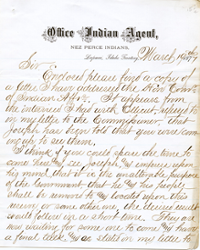 Office Indian Agent,
NEZ PERCE INDIANS,
Lapwai, Idaho Territory, March 19th 187
Sir
Enclosed please find a copy of
a letter I have addressed the Hon Com
of Indian Aff's. It appears from
the internal of which letter, refered to
in my letter to the Commissioner that
Joseph has been told that you were com-
ing up to see them.
I think if you could spare the time to
come here & see Joseph, & impress upon
his mind that it is the unalterable purpose
of the Government, that he & his people
shall be removed to & located upon this
reserve or some other, the desired result
would follow in a short time. They are
now waiting for some one to come & have
a final talk, & as stated in my letter to